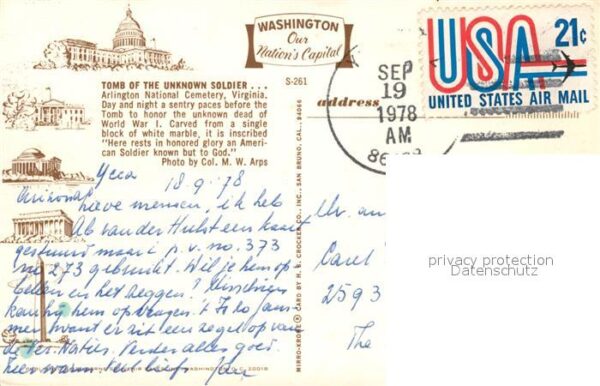 WASHINGTON
Our
Nation's Capital
S-261
TOMB OF THE UNKNOWN SOLDIER . . .
Arlington National Cemetery, Virginia.
Day and night a sentry paces before the
Tomb to honor the unknown dead of
World War I. Carved from a single
block of white marble, it is inscribed
"Here rests in honored glory an Ameri-
can Soldier known but to God."
Photo by Col. M. W. Arps
18-9-'78
Arizona
lieve mensen, ik heb
Ab van der Hulst een kaart
gestuurd maar i.p.v. no. 373
no 273 gebruikt. Wil je hem op
bellen en het zeggen? Misschien
kan hij hem op vragen. 't Is jam-
mer want er zit een zegel op van
de Ver. Naties. Verder alles goed.
heel warm. liefs
MIRRO-KROME ® CARD BY H. S. CROCKER CO., INC., SAN BRUNO, CAL. 94066
address
SEP
19
1978
AM
USA 21c
UNITED STATES AIR MAIL
Carel
2593
The
privacy protection
Datenschutz